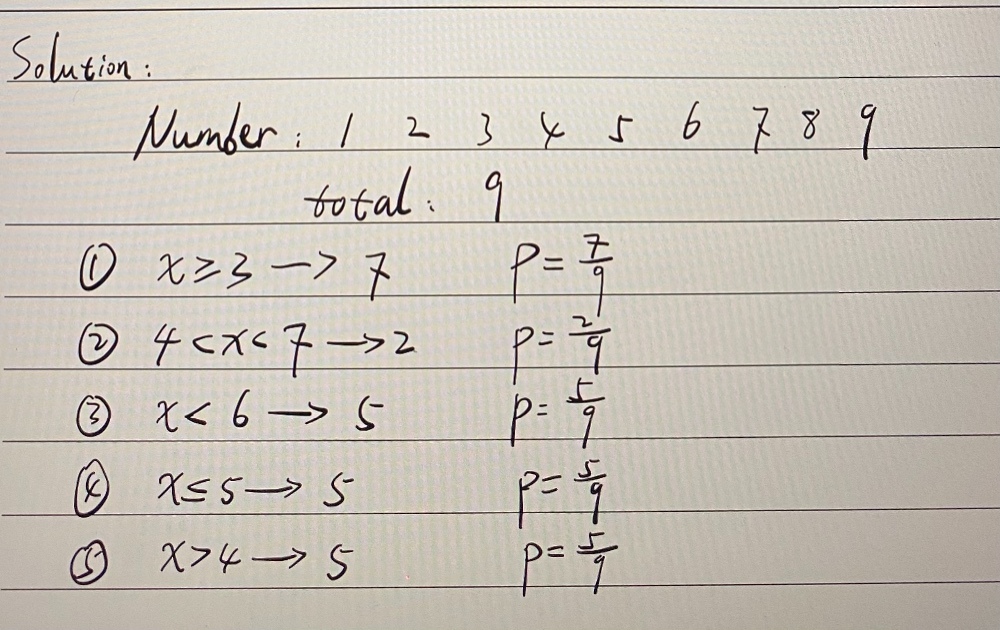 Solution:
Number: 1 2 3 4 5 6 7 8 9
total: 9
① x≥3 → 7 P=7/9
② 4<x<7 → 2 P=2/9
③ x<6 → 5 P=5/9
④ x≤5 → 5 P=5/9
⑤ x>4 → 5 P=5/9